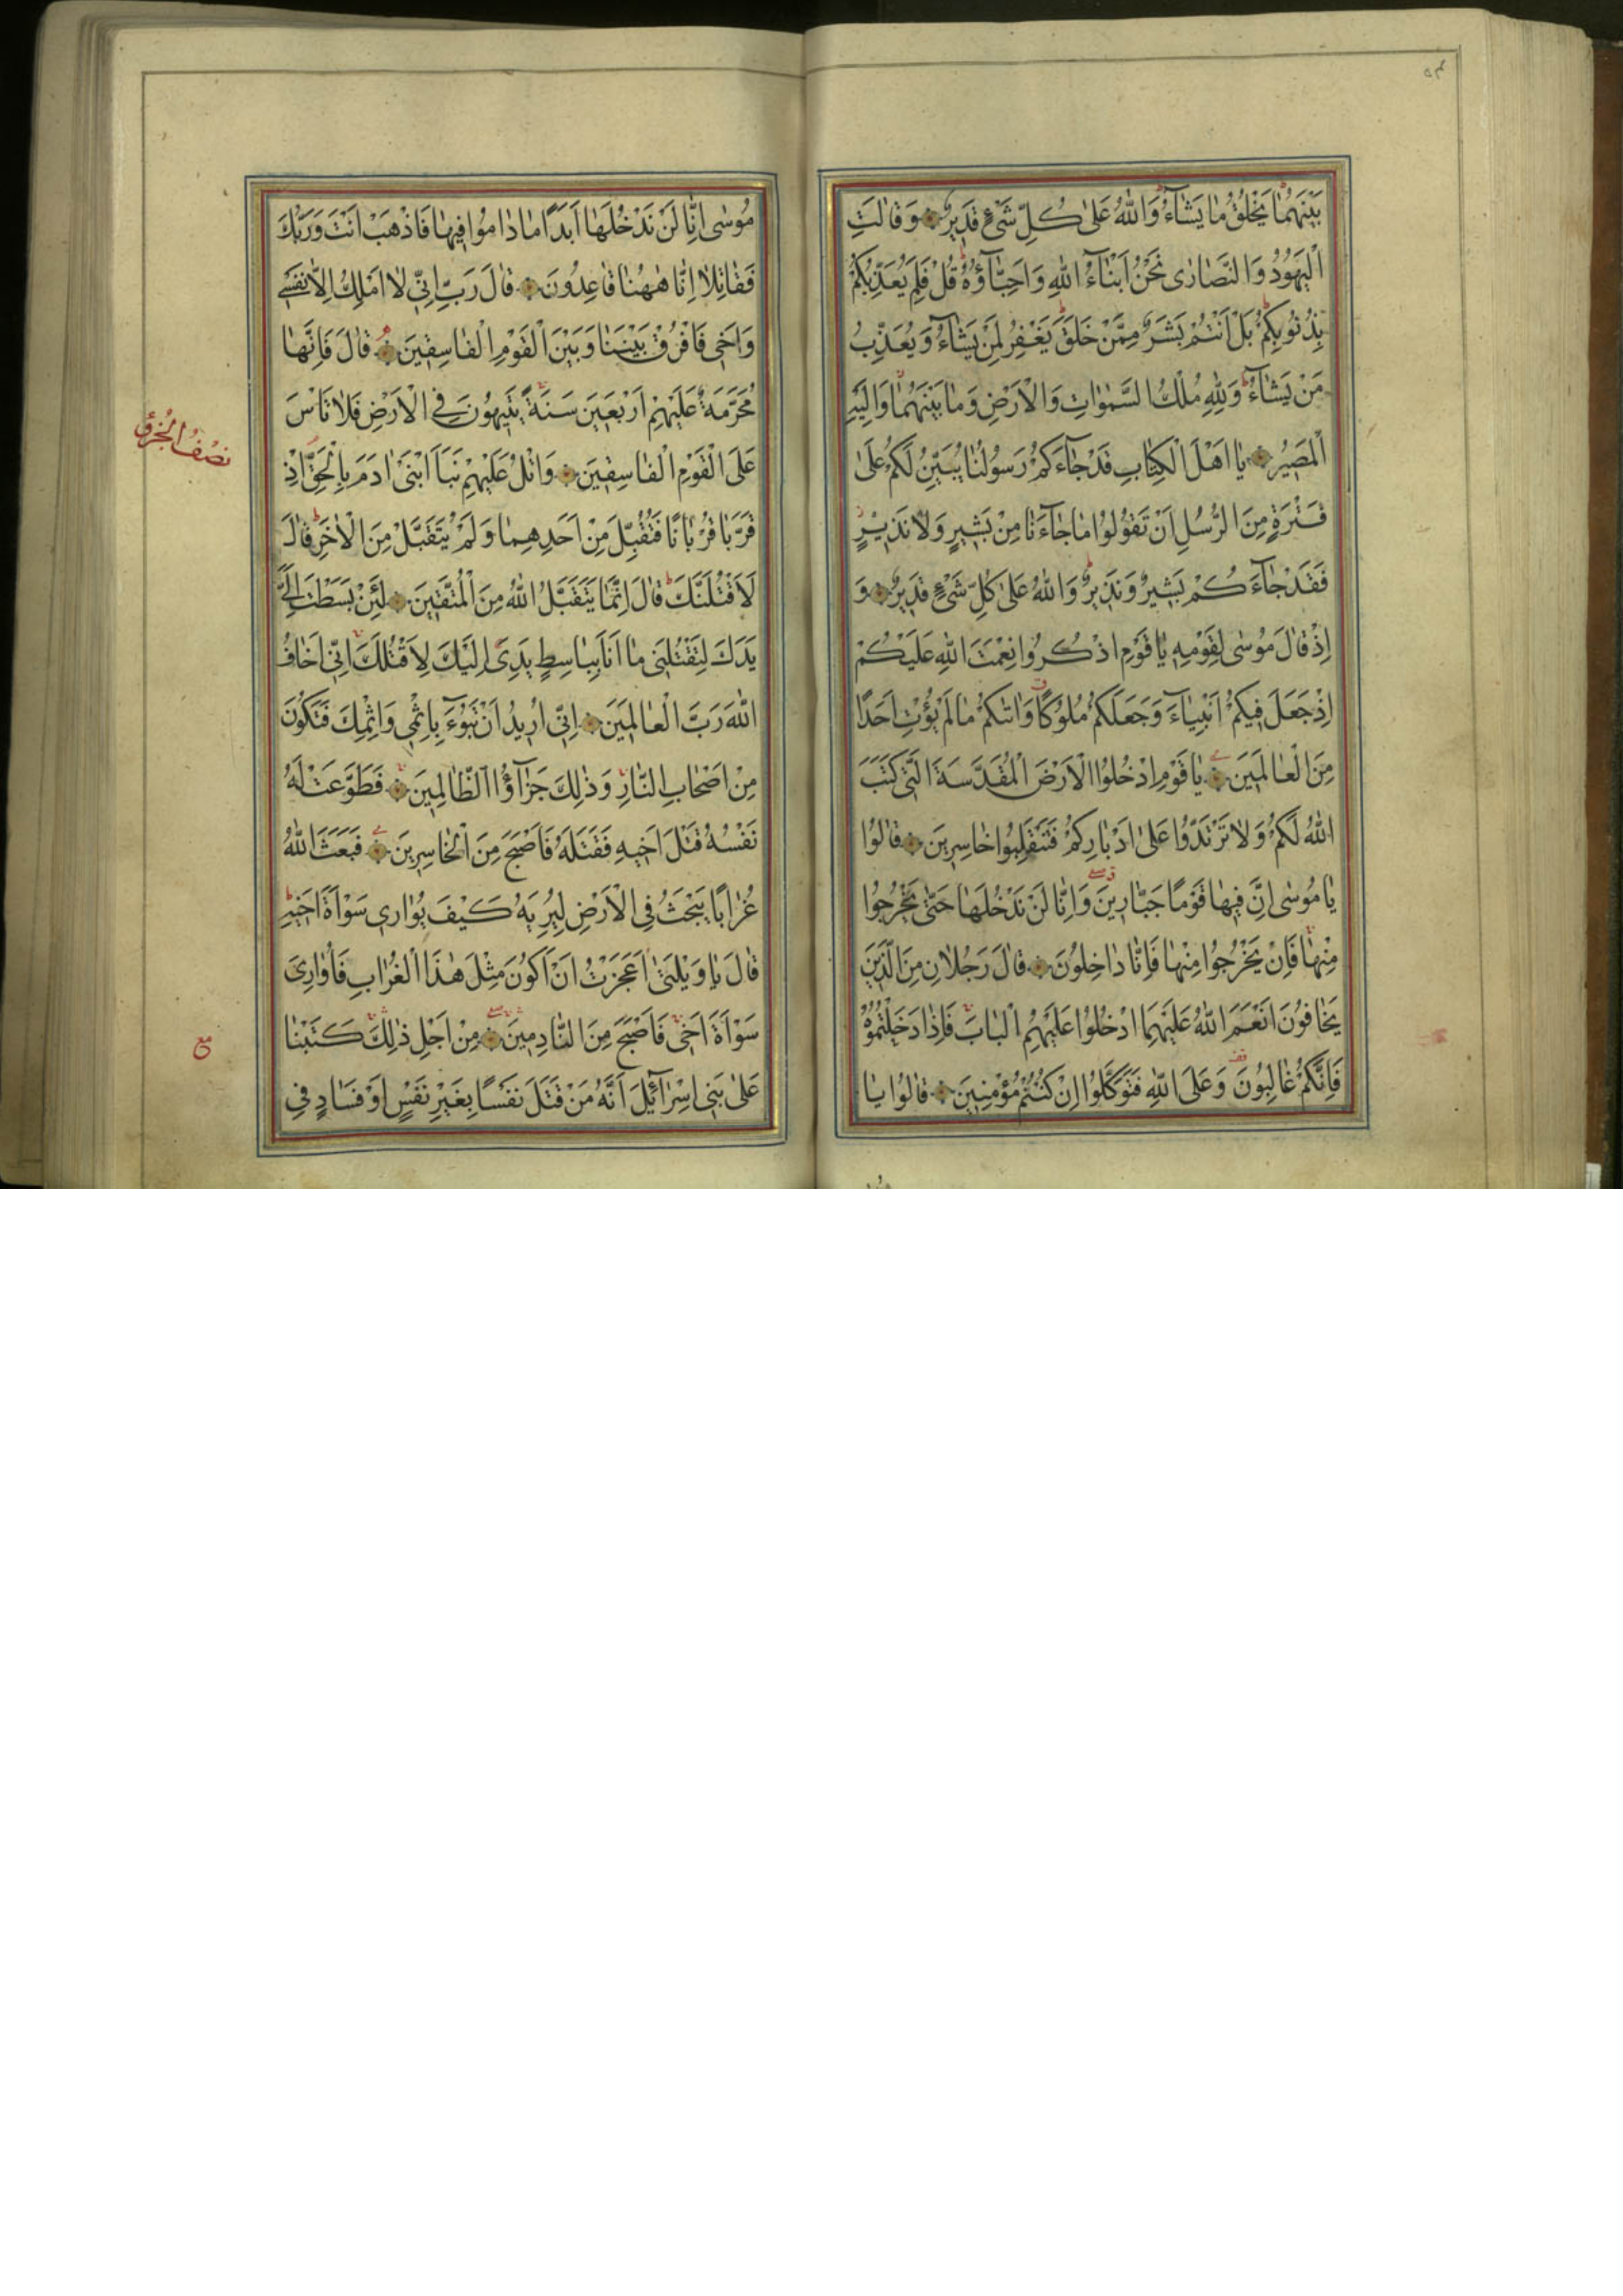 بَيْنَهُمَا يَخْلُقُ مَا يَشَاءُ وَاللّٰهُ عَلٰى كُلِّ شَيْءٍ قَدِيرٌ وَقَالَتِ
الْيَهُودُ وَالنَّصَارٰى نَحْنُ اَبْنَاءُ اللّٰهِ وَاَحِبَّاؤُهُ قُلْ فَلِمَ يُعَذِّبُكُمْ
بِذُنُوبِكُمْ بَلْ اَنْتُمْ بَشَرٌ مِمَّنْ خَلَقَ يَغْفِرُ لِمَنْ يَشَاءُ وَيُعَذِّبُ
مَنْ يَشَاءُ وَلِلّٰهِ مُلْكُ السَّمٰوَاتِ وَالْاَرْضِ وَمَا بَيْنَهُمَا وَاِلَيْهِ
الْمَصِيرُ يَا اَهْلَ الْكِتَابِ قَدْ جَاءَكُمْ رَسُولُنَا يُبَيِّنُ لَكُمْ عَلٰى
فَتْرَةٍ مِنَ الرُّسُلِ اَنْ تَقُولُوا مَا جَاءَنَا مِنْ بَشِيرٍ وَلَا نَذِيرٍ
فَقَدْ جَاءَكُمْ بَشِيرٌ وَنَذِيرٌ وَاللّٰهُ عَلٰى كُلِّ شَيْءٍ قَدِيرٌ وَ
اِذْ قَالَ مُوسٰى لِقَوْمِهِ يَا قَوْمِ اذْكُرُوا نِعْمَتَ اللّٰهِ عَلَيْكُمْ
اِذْ جَعَلَ فِيكُمْ اَنْبِيَاءَ وَجَعَلَكُمْ مُلُوكًا وَاٰتٰىكُمْ مَا لَمْ يُؤْتِ اَحَدًا
مِنَ الْعَالَمِينَ يَا قَوْمِ ادْخُلُوا الْاَرْضَ الْمُقَدَّسَةَ الَّتِي كَتَبَ
اللّٰهُ لَكُمْ وَلَا تَرْتَدُّوا عَلٰى اَدْبَارِكُمْ فَتَنْقَلِبُوا خَاسِرِينَ قَالُوا
يَا مُوسٰى اِنَّ فِيهَا قَوْمًا جَبَّارِينَ وَاِنَّا لَنْ نَدْخُلَهَا حَتّٰى يَخْرُجُوا
مِنْهَا فَاِنْ يَخْرُجُوا مِنْهَا فَاِنَّا دَاخِلُونَ قَالَ رَجُلَانِ مِنَ الَّذِينَ
يَخَافُونَ اَنْعَمَ اللّٰهُ عَلَيْهِمَا ادْخُلُوا عَلَيْهِمُ الْبَابَ فَاِذَا دَخَلْتُمُوهُ
فَاِنَّكُمْ غَالِبُونَ وَعَلَى اللّٰهِ فَتَوَكَّلُوا اِنْ كُنْتُمْ مُؤْمِنِينَ قَالُوا يَا
مُوسٰى اِنَّا لَنْ نَدْخُلَهَا اَبَدًا مَا دَامُوا فِيهَا فَاذْهَبْ اَنْتَ وَرَبُّكَ
فَقَاتِلَا اِنَّا هٰهُنَا قَاعِدُونَ قَالَ رَبِّ اِنِّي لَا اَمْلِكُ اِلَّا نَفْسِي
وَاَخِي فَافْرُقْ بَيْنَنَا وَبَيْنَ الْقَوْمِ الْفَاسِقِينَ قَالَ فَاِنَّهَا
مُحَرَّمَةٌ عَلَيْهِمْ اَرْبَعِينَ سَنَةً يَتِيهُونَ فِي الْاَرْضِ فَلَا تَأْسَ
عَلَى الْقَوْمِ الْفَاسِقِينَ وَاتْلُ عَلَيْهِمْ نَبَاَ ابْنَيْ اٰدَمَ بِالْحَقِّ اِذْ
نصف الجزؤ
قَرَّبَا قُرْبَانًا فَتُقُبِّلَ مِنْ اَحَدِهِمَا وَلَمْ يُتَقَبَّلْ مِنَ الْاٰخَرِ قَالَ
لَاَقْتُلَنَّكَ قَالَ اِنَّمَا يَتَقَبَّلُ اللّٰهُ مِنَ الْمُتَّقِينَ لَئِنْ بَسَطْتَ اِلَيَّ
يَدَكَ لِتَقْتُلَنِي مَا اَنَا بِبَاسِطٍ يَدِيَ اِلَيْكَ لِاَقْتُلَكَ اِنِّي اَخَافُ
اللّٰهَ رَبَّ الْعَالَمِينَ اِنِّي اُرِيدُ اَنْ تَبُوءَ بِاِثْمِي وَاِثْمِكَ فَتَكُونَ
مِنْ اَصْحَابِ النَّارِ وَذٰلِكَ جَزَاؤُا الظَّالِمِينَ فَطَوَّعَتْ لَهُ
نَفْسُهُ قَتْلَ اَخِيهِ فَقَتَلَهُ فَاَصْبَحَ مِنَ الْخَاسِرِينَ فَبَعَثَ اللّٰهُ
غُرَابًا يَبْحَثُ فِي الْاَرْضِ لِيُرِيَهُ كَيْفَ يُوَارِي سَوْاَةَ اَخِيهِ
قَالَ يَا وَيْلَتٰى اَعَجَزْتُ اَنْ اَكُونَ مِثْلَ هٰذَا الْغُرَابِ فَاُوَارِيَ
سَوْاَةَ اَخِي فَاَصْبَحَ مِنَ النَّادِمِينَ مِنْ اَجْلِ ذٰلِكَ كَتَبْنَا
مع
عَلٰى بَنِي اِسْرَائِيلَ اَنَّهُ مَنْ قَتَلَ نَفْسًا بِغَيْرِ نَفْسٍ اَوْ فَسَادٍ فِي